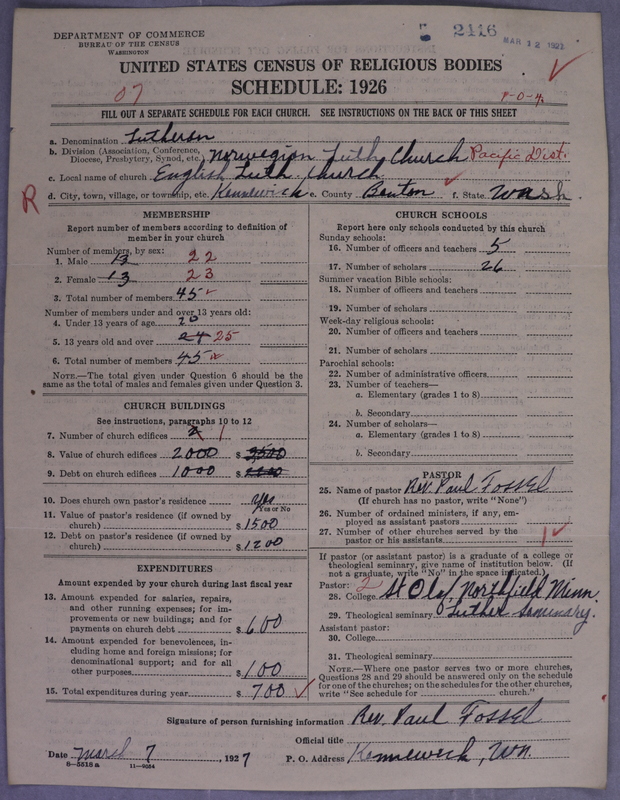 DEPARTMENT OF COMMERCE
BUREAU OF THE CENSUS
WASHINGTON
2116
MAR 12 1927
UNITED STATES CENSUS OF RELIGIOUS BODIES
SCHEDULE: 1926
07
9-0-4
FILL OUT A SEPARATE SCHEDULE FOR EACH CHURCH. SEE INSTRUCTIONS ON THE BACK OF THIS SHEET
a. Denomination Lutheran
b. Division (Association, Conference, Diocese, Presbytery, Synod, etc. Norwegian Luth Church Pacific Dist.
c. Local name of church English Luth Church
R
d. City, town, village, or township, etc. Kennewick e. County Benton f. State Wash.
MEMBERSHIP
Report number of members according to definition of
member in your church
Number of members, by sex:
1. Male 13 22
2. Female 13 23
3. Total number of members 45
Number of members under and over 13 years old:
4. Under 13 years of age 20
5. 13 years old and over 24 25
6. Total number of members 45
NOTE.—The total given under Question 6 should be
same as the total of males and females given under Question 3.
CHURCH BUILDINGS
See instructions, paragraphs 10 to 12
7. Number of church edifices 2 1
8. Value of church edifices 2000 $ 3500
9. Debt on church edifices 1000 $
10. Does church own pastor's residence Yes
Yes or No
11. Value of pastor's residence (if owned by
church) $ 1500
12. Debt on pastor's residence (if owned by
church) $ 1200
EXPENDITURES
Amount expended by your church during last fiscal year
13. Amount expended for salaries, repairs,
and other running expenses; for im-
provements or new buildings; and for
payments on church debt $ 600
14. Amount expended for benevolences, in-
cluding home and foreign missions; for
denominational support; and for all
other purposes $ 100
15. Total expenditures during year $ 700
CHURCH SCHOOLS
Report here only schools conducted by this church
Sunday schools:
16. Number of officers and teachers 5
17. Number of scholars 26
Summer vacation Bible schools:
18. Number of officers and teachers
19. Number of scholars
Week-day religious schools:
20. Number of officers and teachers
21. Number of scholars
Parochial schools:
22. Number of administrative officers
23. Number of teachers—
a. Elementary (grades 1 to 8)
b. Secondary
24. Number of scholars—
a. Elementary (grades 1 to 8)
b. Secondary
PASTOR
25. Name of pastor Rev. Paul Fossel
(If church has no pastor, write "None")
26. Number of ordained ministers, if any, em-
ployed as assistant pastors
27. Number of other churches served by the
pastor or his assistants 1
If pastor (or assistant pastor) is a graduate of a college or
theological seminary, give name of institution below. (If
not a graduate, write "No" in the space indicated.)
Pastor: 2
28. College St Olaf Northfield Minn.
29. Theological seminary Luther Seminary.
Assistant pastor:
30. College
31. Theological seminary
NOTE.—Where one pastor serves two or more churches,
Questions 28 and 29 should be answered only on the schedule
for one of the churches; on the schedules for the other churches,
write "See schedule for church."
Signature of person furnishing information Rev. Paul Fossel
Official title
Date March 7, 1927 P. O. Address Kennewick, Wn.
8-5518 a 11-9054